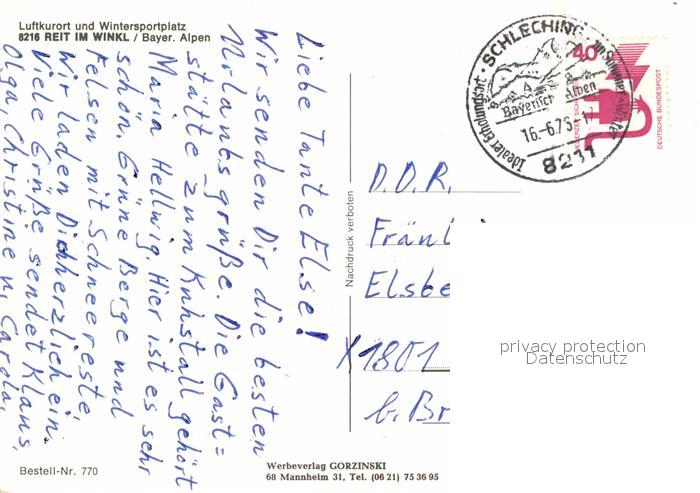 Luftkurort und Wintersportplatz
8216 REIT IM WINKL / Bayer. Alpen
Liebe Tante Else!
Wir senden Dir die besten
Urlaubsgrüße. Die Gast=
stätte zum Kuhstall gehört
Maria Hellwig. Hier ist es sehr
schön. Grüne Berge und
Felsen mit Schneereste.
Wir laden Dich herzlich ein.
Viele Grüße sendet Klaus,
Olga, Christine u. Carola.
Bestell-Nr. 770
Werbeverlag GORZINSKI
68 Mannheim 31, Tel. (06 21) 75 36 95
Nachdruck verboten
SCHLECHING
Idealer Erholungsort
im Sommer u. Winter
Bayerisch Alpen
16.-6.75
8211
40
DEUTSCHE BUNDESPOST
D.D.R.
Fräul
Elsbe
X1801
b. Br
privacy protection
Datenschutz